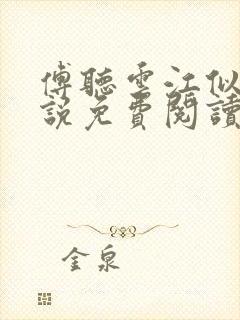 傅聽雲江似
說免費閱讀
金泉